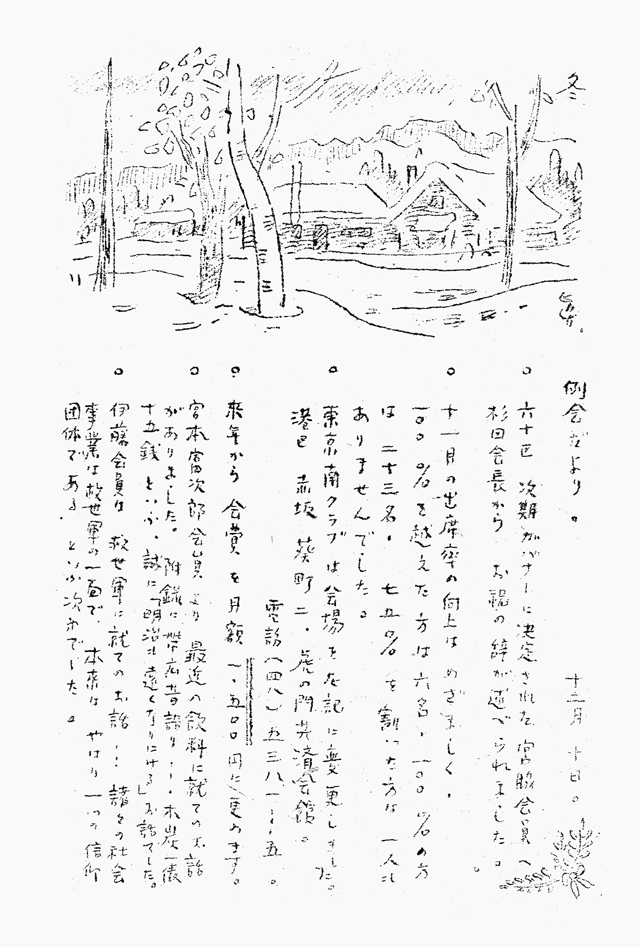 冬
例会だより。 十二月十日。
○ 六十区 次期ガバナーに決定された宮脇会員へ
杉田会長から お祝の辞が述べられました。
○ 十一月の出席率の向上は めざましく、
一〇〇%を越えた方は六名、一〇〇%の方
は 二十三名。 七五% を割った方は 一人も
ありませんでした。
○ 東京南クラブは会場を左記に変更しました。
港区 赤坂 葵町二、虎の門共済会館。
電話(四八)五三八一~五。
○ 来年から 会費を月額 一、五〇〇円に更めます。
○ 宮本富次郎会員より 最近の飲料に就てのお話
がありました。 附録に帯広昔語り… 木炭一俵
十五銭という、誠に「明治は遠くなりにける」お話でした。
○ 伊藤会員は 救世軍に就てのお話… 諸々の社会
事業は救世軍の一面で、本来は やはり 一つの信仰
団体である、という次第でした。